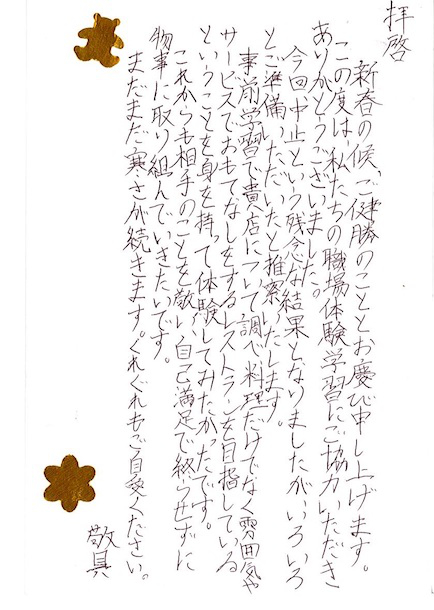 拝啓
新春の候、ご健勝のこととお慶び申し上げます。
この度は、私たちの職場体験学習にご協力いただき
ありがとうございました。
今回中止という残念な結果となりましたがいろいろ
とご準備いただいたと推察いたします。
事前学習で貴店について調べ、料理だけでなく雰囲気や
サービスでおもてなしをするレストランを目指している
ということを身を持って体験してみたかったです。
これからも相手のことを敬い、自己満足で終らせずに
物事に取り組んでいきたいです。
まだまだ寒さが続きます。くれぐれもご自愛ください。
敬具